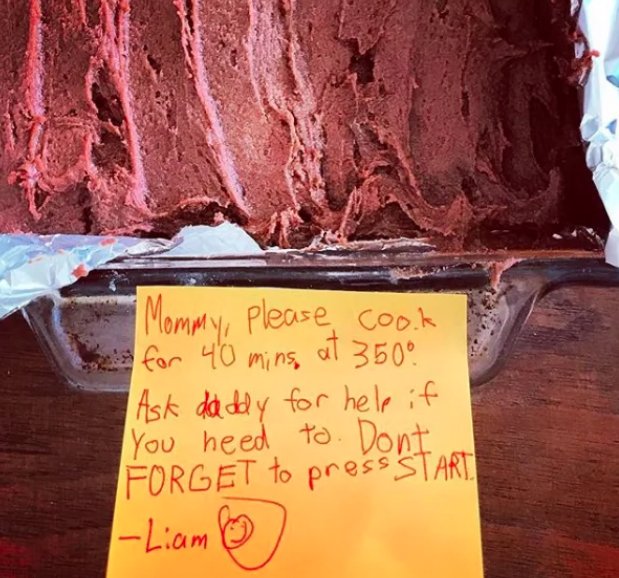 Mommy, please cook
for 40 mins. at 350°.
Ask daddy for help if
you need to. Dont
FORGET to press START.
-Liam